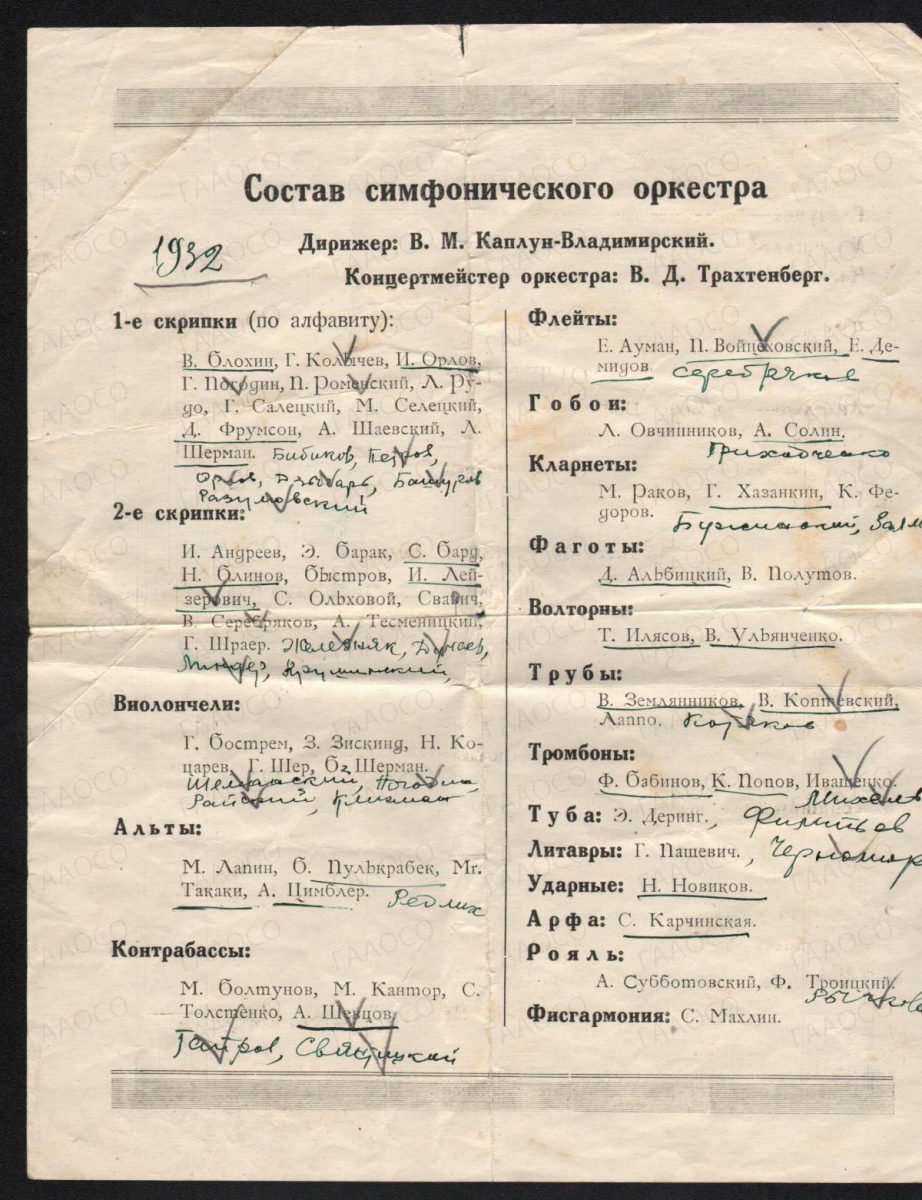 Состав симфонического оркестра
1932
Дирижер: В. М. Каплун-Владимирский.
Концертмейстер оркестра: В. Д. Трахтенберг.
1-е скрипки (по алфавиту):
В. Блохин, Г. Колычев, И. Орлов,
Г. Погодин, П. Роменский, Л. Ру-
до, Г. Салецкий, М. Селецкий,
Д. Фрумсон, А. Шаевский, Л.
Шерман. Бибиков, Петров,
Орлов,
Разумовский
2-е скрипки:
И. Андреев, Э. Барак, С. Бард,
Н. Блинов, Быстров, И. Лей-
зерович, С. Ольховой, Свавич,
В. Серебряков, А. Тесменицкий,
Г. Шраер. Железняк, Дунаев,
Линдер, Крушинский,
Виолончели:
Г. Бострем, З. Зискинд, Н. Ко-
царев, Г. Шер, Б. Шерман.
Райский, Клизман
Альты:
М. Лапин, Б. Пулькрабек, Мг.
Такаки, А. Цимблер. Редлих
Контрабассы:
М. Болтунов, М. Кантор, С.
Толстенко, А. Шевцов.
Таиров, Святицкий
Флейты:
Е. Ауман, П. Войцеховский, Е. Де-
мидов Серебряков
Гобои:
Л. Овчинников, А. Солин.
Приходченко
Кларнеты:
М. Раков, Г. Хазанкин, К. Фе-
доров.
Фаготы:
Д. Альбицкий, В. Полутов.
Волторны:
Т. Илясов, В. Ульянченко.
Трубы:
В. Землянников, В. Коптевский,
Лаппо. Коряков
Тромбоны:
Ф. Бабинов, К. Попов, Иващенко.
Туба: Э. Деринг., Филитов
Литавры: Г. Пашевич.,
Ударные: Н. Новиков.
Арфа: С. Карчинская.
Рояль:
А. Субботовский, Ф. Троицкий.
Фисгармония: С. Махлин.